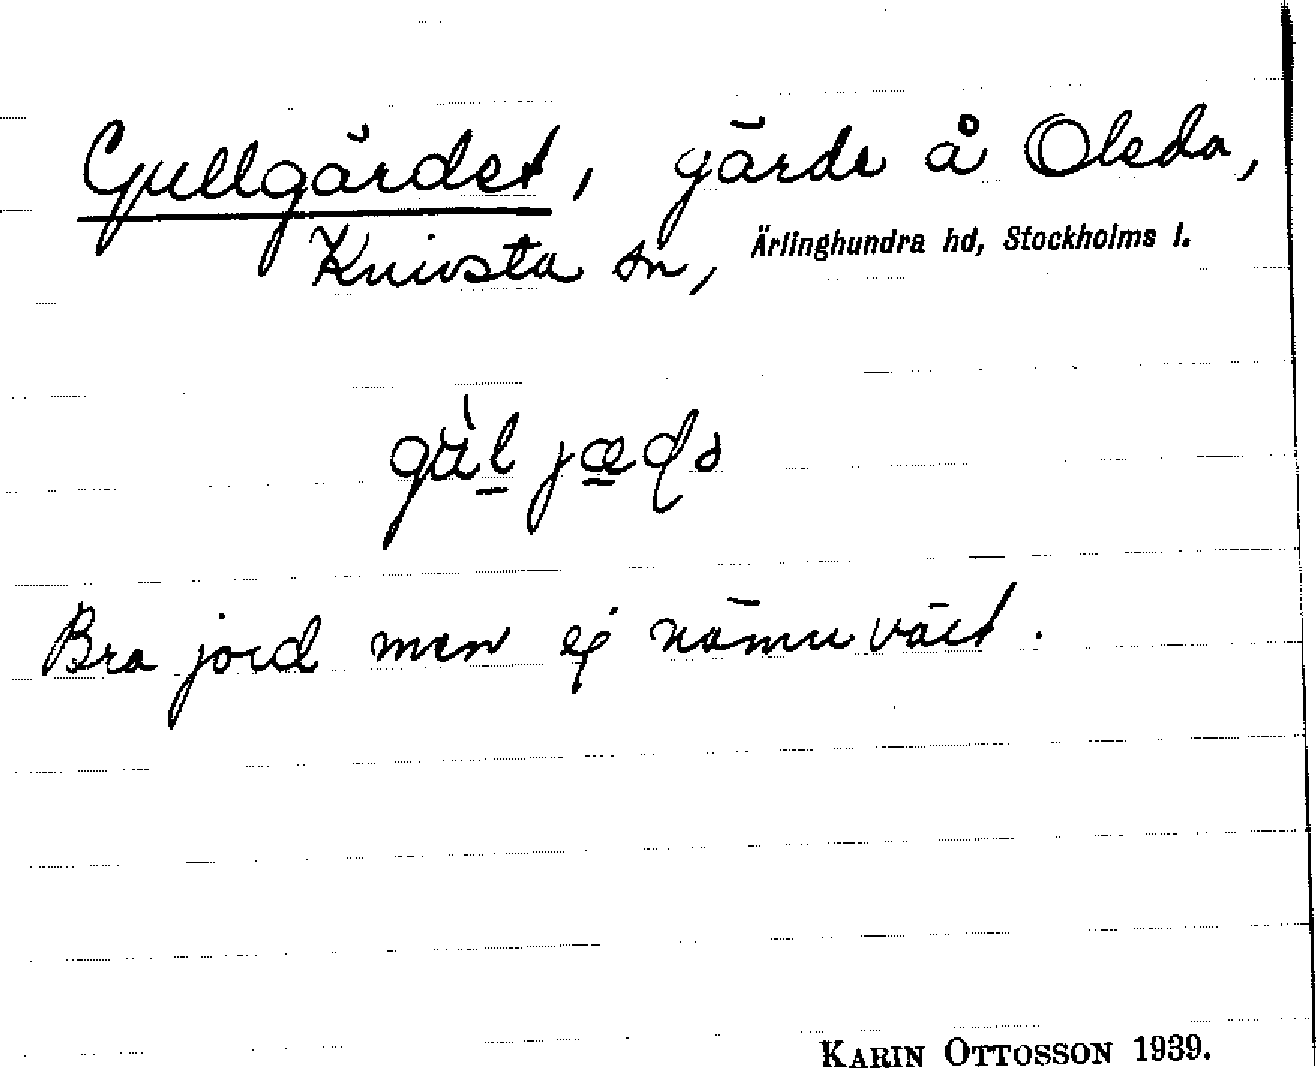 Gullgärdet, gärde å Olsda,
Knivsta sn, Ärlinghundra hd, Stockholms l.
Bra jord men ej nämnvärt.
KARIN OTTOSSON 1939.